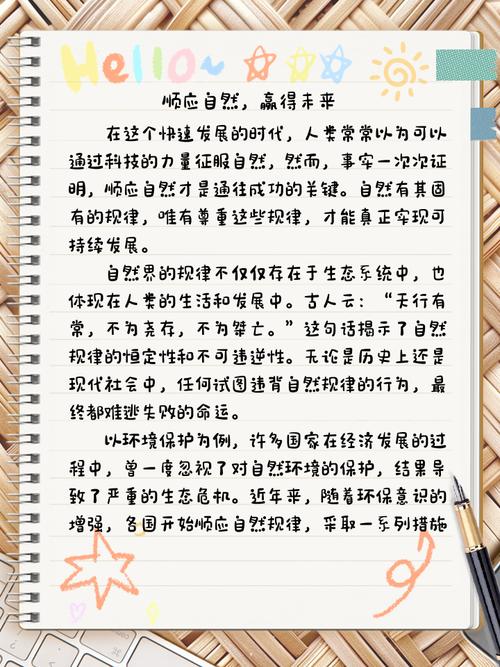 Hello~
顺应自然，赢得未来
在这个快速发展的时代，人类常常以为可以
通过科技的力量征服自然，然而，事实一次次证
明，顺应自然才是通往成功的关键。自然有其固
有的规律，唯有尊重这些规律，才能真正实现可
持续发展。
自然界的规律不仅仅存在于生态系统中，也
体现在人类的生活和发展中。古人云：“天行有
常，不为尧存，不为桀亡。”这句话揭示了自然
规律的恒定性和不可违逆性。无论是历史上还是
现代社会中，任何试图违背自然规律的行为，最
终都难逃失败的命运。
以环境保护为例，许多国家在经济发展的过
程中，曾一度忽视了对自然环境的保护，结果导
致了严重的生态危机。近年来，随着环保意识的
增强，各国开始顺应自然规律，采取一系列措施